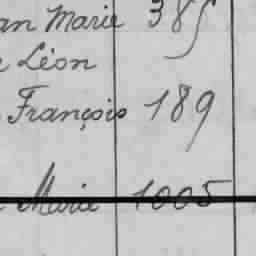 an Marie 385
e Léon
François 189
Marie 1005